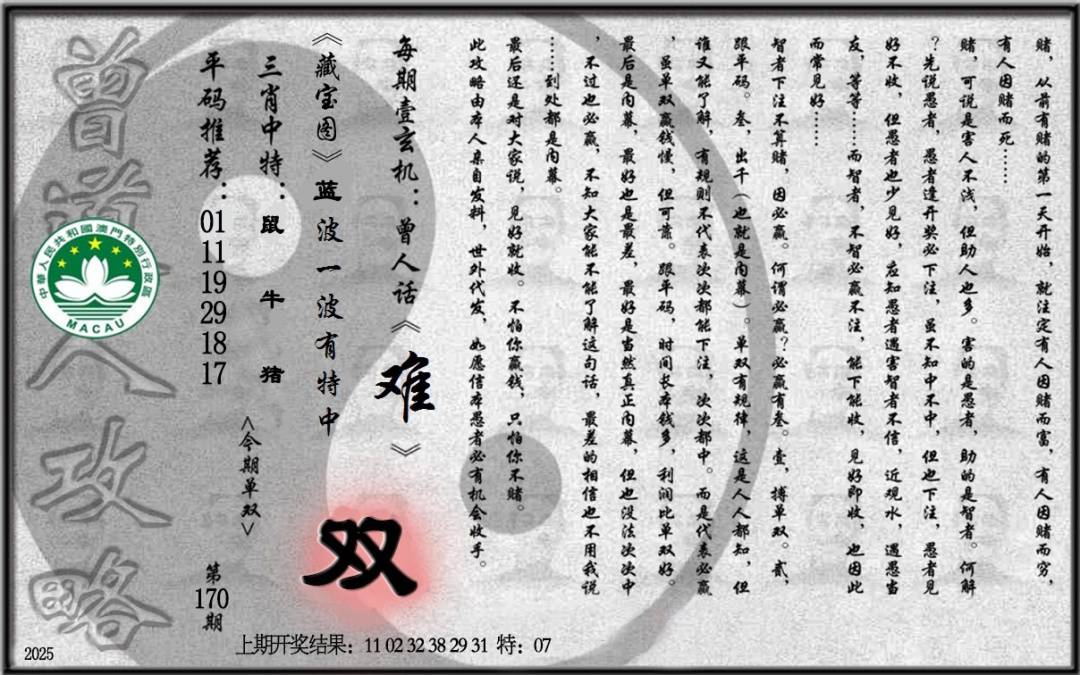 赌，从前有赌的第一天开始，就注定有人因赌而富，有人因赌而穷，
有人因赌而死……
赌，可说是害人不浅，但助人也多。害的是愚者，助的是智者。何解
？先说愚者，愚者逢开奖必下注，虽不知中不中，但也下注，愚者见
好不收，但愚者也少见好，应知愚者遇害智者不信，近观水，遇愚当
友，等等……而智者，不智必赢不注，能下能收，见好即收，也因此
而常见好……
智者下注不算赌，因必赢。何谓必赢？必赢有叁。壹，搏单双。贰，
跟平码。叁，出千（也就是内幕）。单双有规律，这是人人都知，但
谁又能了解，有规则不代表次次都能下注，次次都中。而是代表必赢
，虽单双赢钱慢，但可靠。跟平码，时间长本钱多，利润比单双好。
最后是内幕，最好也是最差，最好是当然真正内幕，但也没法次次中
，不过也必赢，不知大家能不能了解这句话，最差的相信也不用我说
……到处都是内幕。
最后还是对大家说，见好就收。不怕你赢钱，只怕你不赌。
此攻略由本人亲自发料，世外代发，如愿信本愚者必有机会收手。
每期壹玄机：曾人话《难》
《藏宝图》蓝波一波有特中
三肖中特：鼠 牛 猪
<今期单双>
双
平码推荐：01 11 19 29 18 17
第170期
曾道人攻略
中華人民共和國澳門特別行政區
MACAU
上期开奖结果：11 02 32 38 29 31 特：07
2025